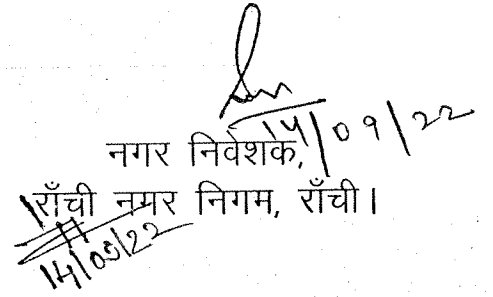 14/09/22
नगर निवेशक,
राँची नगर निगम, राँची।
14/09/22